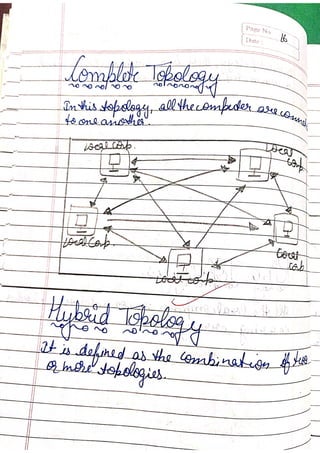 Page No. 16
Date
Complete Topology
In this topology, all the computer are conn
to one another.
Local Comp.
Local
Comp.
Local Comp.
Local
Comp.
Local Comp.
Hybrid Topology
It is defined as the combination of two
or more topologies.